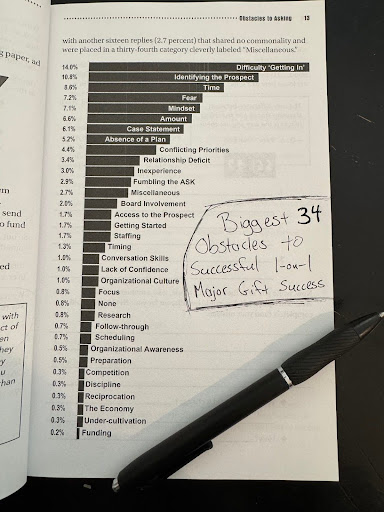 Obstacles to Asking 13
with another sixteen replies (2.7 percent) that shared no commonality and
were placed in a thirty-fourth category cleverly labeled "Miscellaneous."
14.0% Difficulty 'Getting In'
10.8% Identifying the Prospect
8.6% Time
7.2% Fear
7.1% Mindset
6.6% Amount
6.1% Case Statement
5.2% Absence of a Plan
4.4% Conflicting Priorities
3.4% Relationship Deficit
3.0% Inexperience
2.9% Fumbling the ASK
2.7% Miscellaneous
2.0% Board Involvement
1.7% Access to the Prospect
1.7% Getting Started
1.7% Staffing
1.3% Timing
1.0% Conversation Skills
1.0% Lack of Confidence
1.0% Organizational Culture
0.8% Focus
0.8% None
0.8% Research
0.7% Follow-through
0.7% Scheduling
0.5% Organizational Awareness
0.5% Preparation
0.3% Competition
0.3% Discipline
0.3% Reciprocation
0.3% The Economy
0.3% Under-cultivation
0.2% Funding
Biggest 34
Obstacles to
Successful 1-on-1
Major Gift Success
g paper, ad
send
o fund
ed
with
ct of
en
hey
u
han